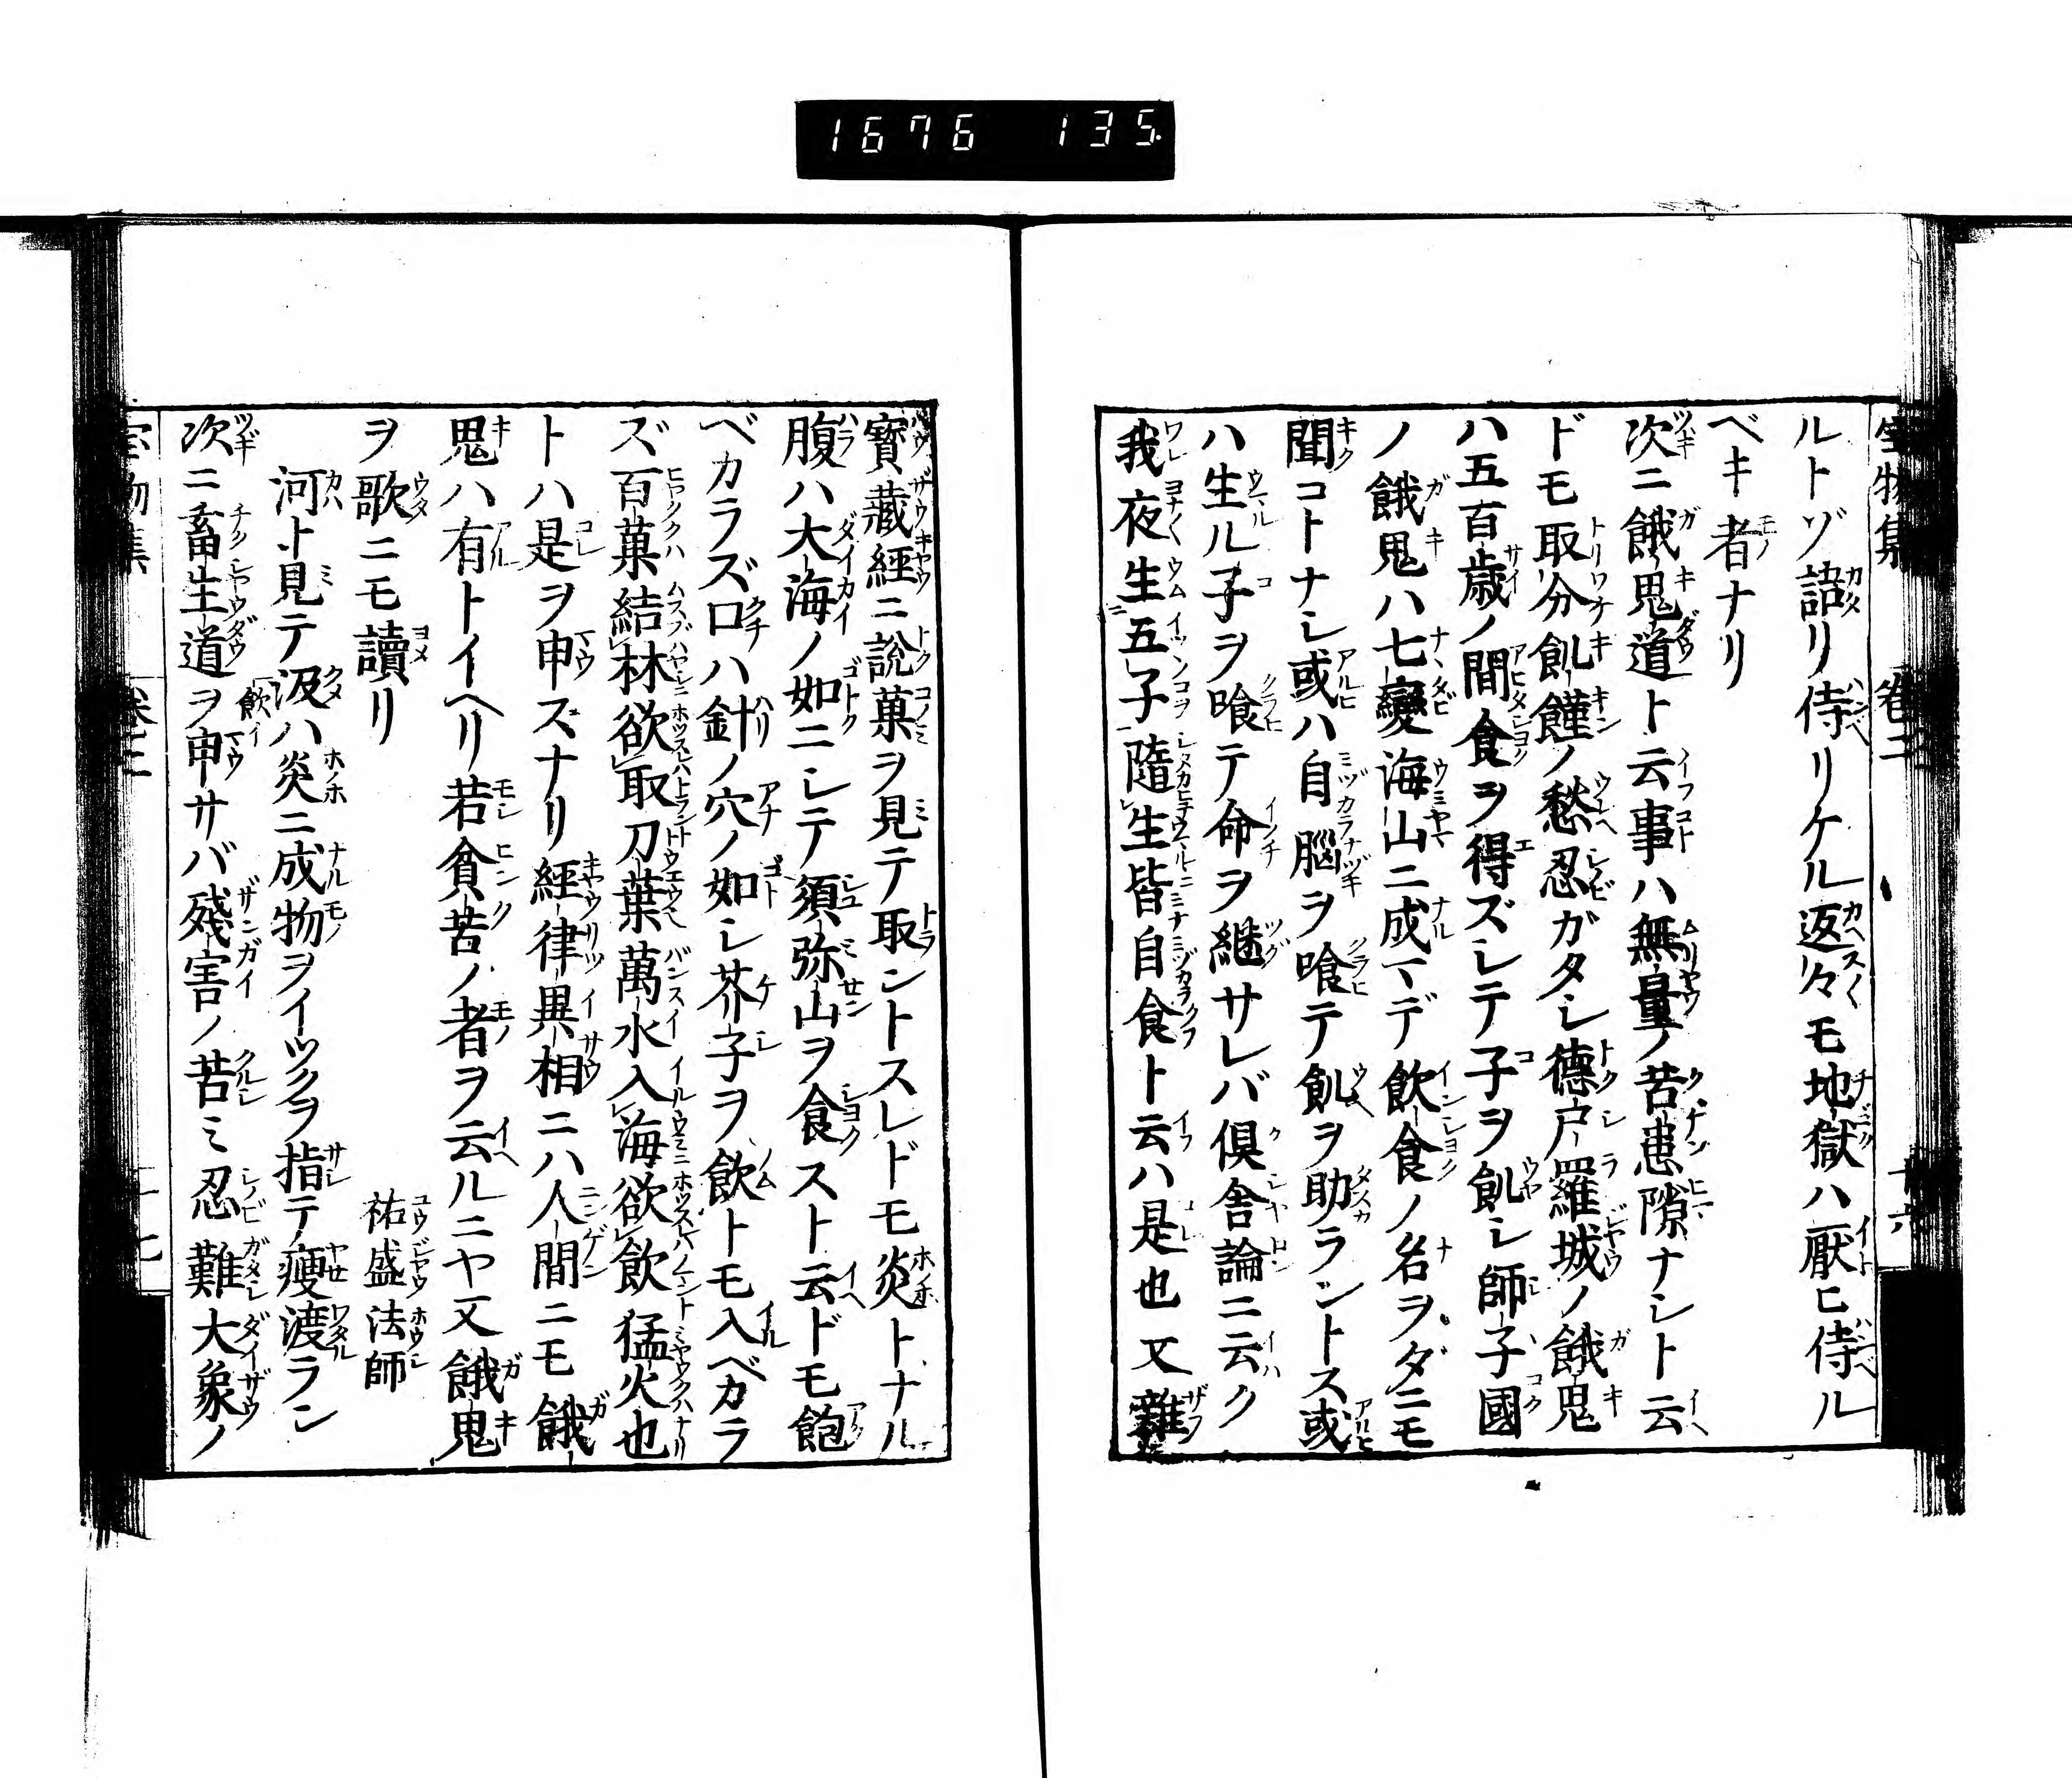 1676 135
宝物集 巻二 十六
ルトゾ語リ侍リケル返々モ地獄ハ厭ヒ侍ル
ベキ者ナリ
次ニ餓鬼道ト云事ハ無量ノ苦患隙ナシト云
ドモ取分飢饉ノ愁忍ガタシ德戸羅城ノ餓鬼
ハ五百歳ノ間食ヲ得ズシテ子ヲ飢シ師子國
ノ餓鬼ハ七變海山ニ成マデ飲食ノ名ヲダニモ
聞コトナシ或ハ自腦ヲ喰テ飢ヲ助ラントス或
ハ生ル子ヲ喰テ命ヲ継サレバ倶舎論ニ云ク
我夜生五子隨生皆自食ト云ハ是也又雜
寳藏經ニ說菓ヲ見テ取ントスレドモ炎トナル
腹ハ大海ノ如ニシテ須弥山ヲ食スト云ドモ飽
ベカラズ口ハ針ノ穴ノ如シ芥子ヲ飲トモ入ベカラ
ズ百菓結林欲取刀葉萬水入海欲飲猛火也
トハ是ヲ申スナリ經律異相ニハ人間ニモ餓
鬼ハ有トイヘリ若貧苦ノ者ヲ云ルニヤ又餓鬼
ヲ歌ニモ讀リ
祐盛法師
河ト見テ汲ハ炎ニ成物ヲイツクヲ指テ痩渡ラン
飲イ
次ニ畜生道ヲ申サバ殘害ノ苦ミ忍難大象ノ